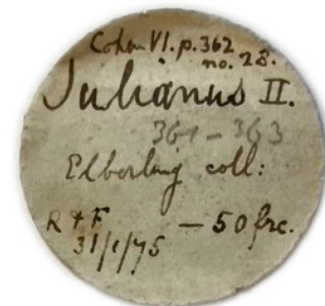 Cohen VI. p. 362
no. 28.
Julianus II.
361 - 363
Elberling coll:
R & F — 50 frc.
31/1/75